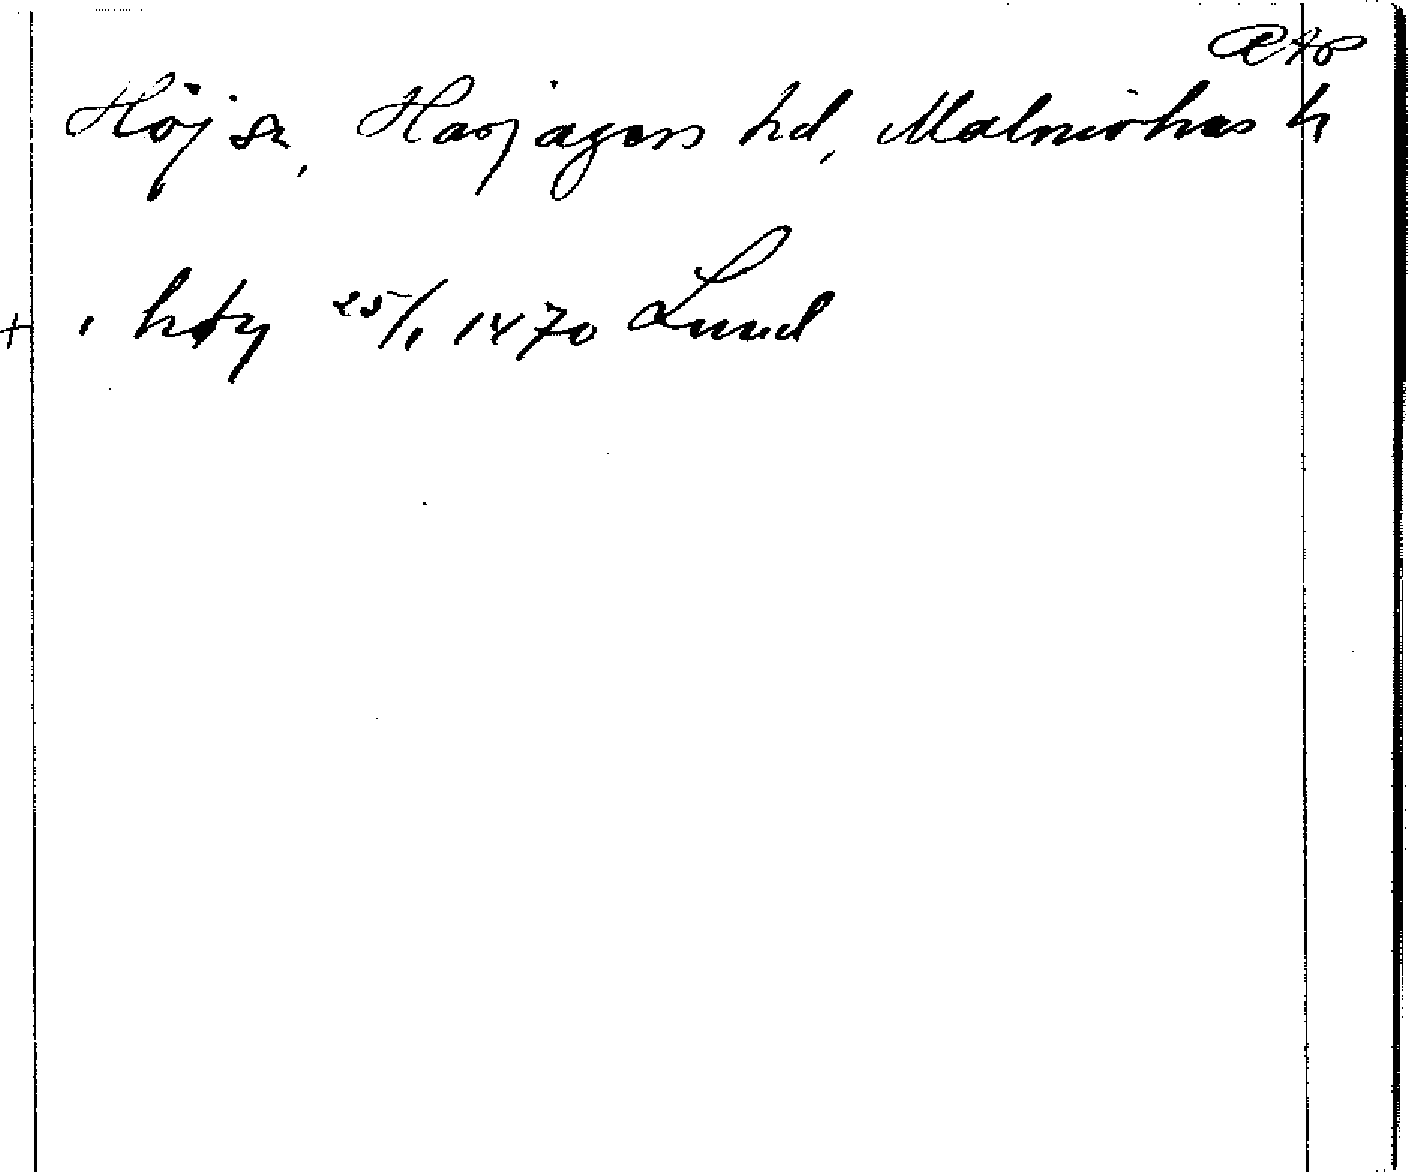 Hög sn, Harjagers hd, Malmöhus l
+ i høy 25/1 1470 Lund